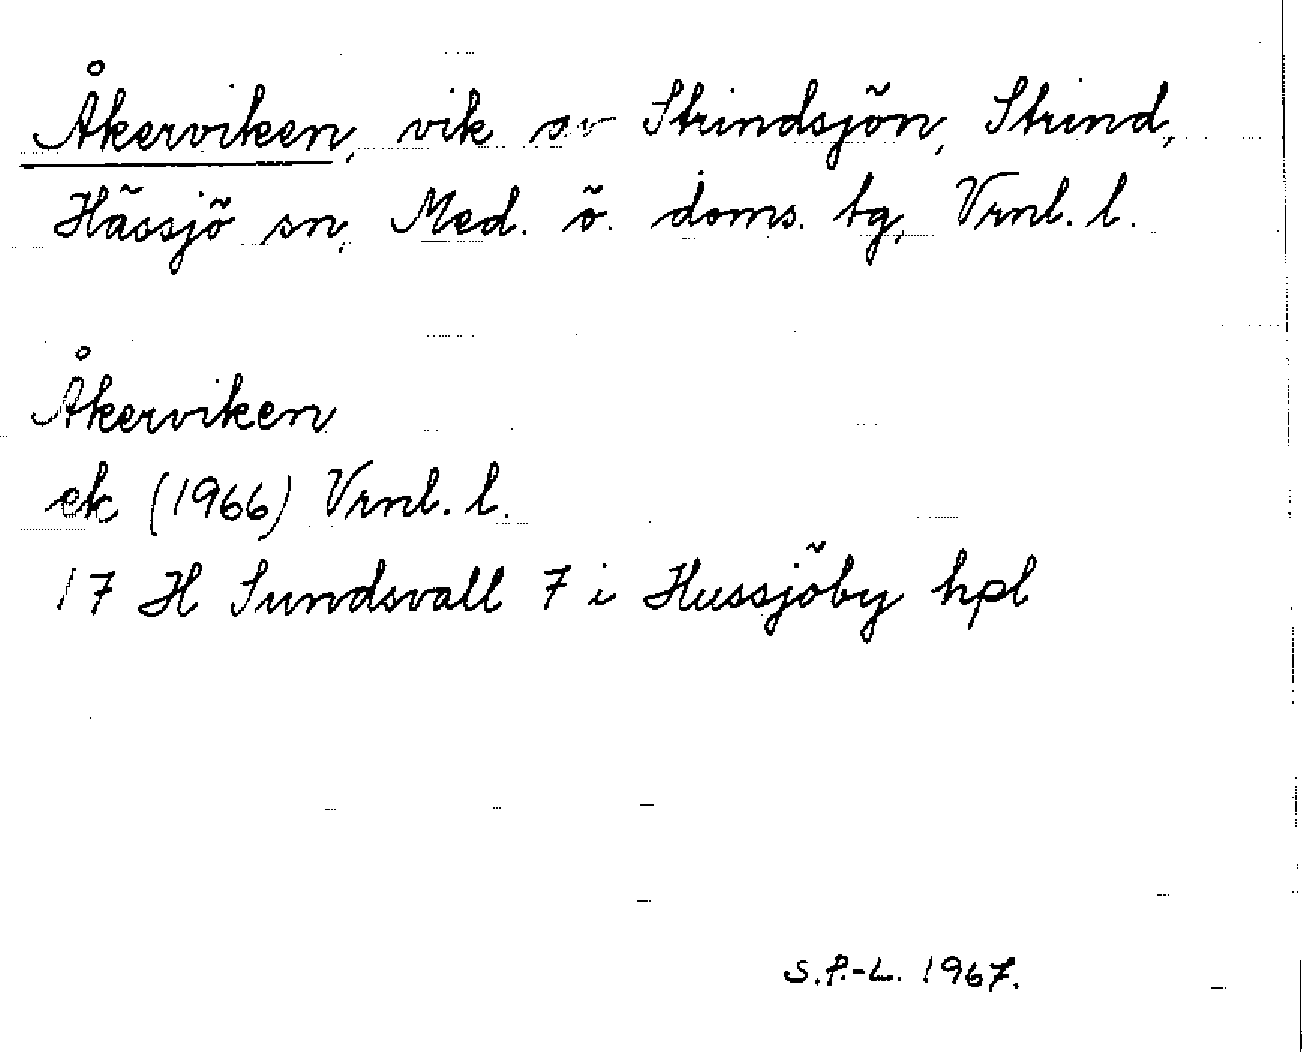 Åkerviken, vik av Strindsjön, Strind,
Hässjö sn, Med. ö. doms. tg, Vrnl. l.
Åkerviken
ek (1966) Vrnl. l.
17 H Sundsvall 7 i Hussjöby hpl
S.P.-L. 1967.